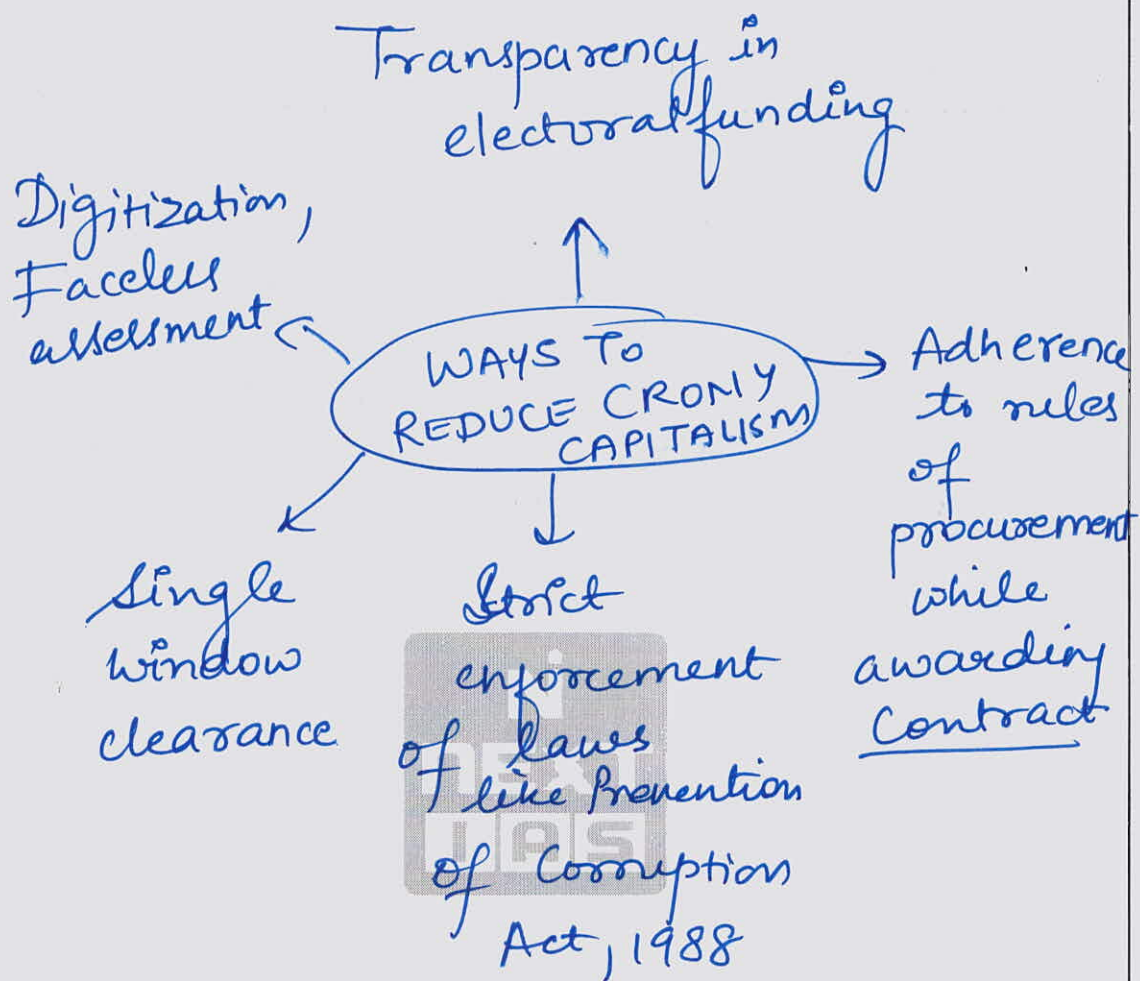 Transparency in
electoral funding
Digitization,
Faceless
assessment
WAYS TO
REDUCE CRONY
CAPITALISM
Adherence
to rules
of
procurement
while
awarding
Contract
Single
window
clearance
Strict
enforcement
of laws
like Prevention
of Corruption
Act, 1988
nEXT
IAS